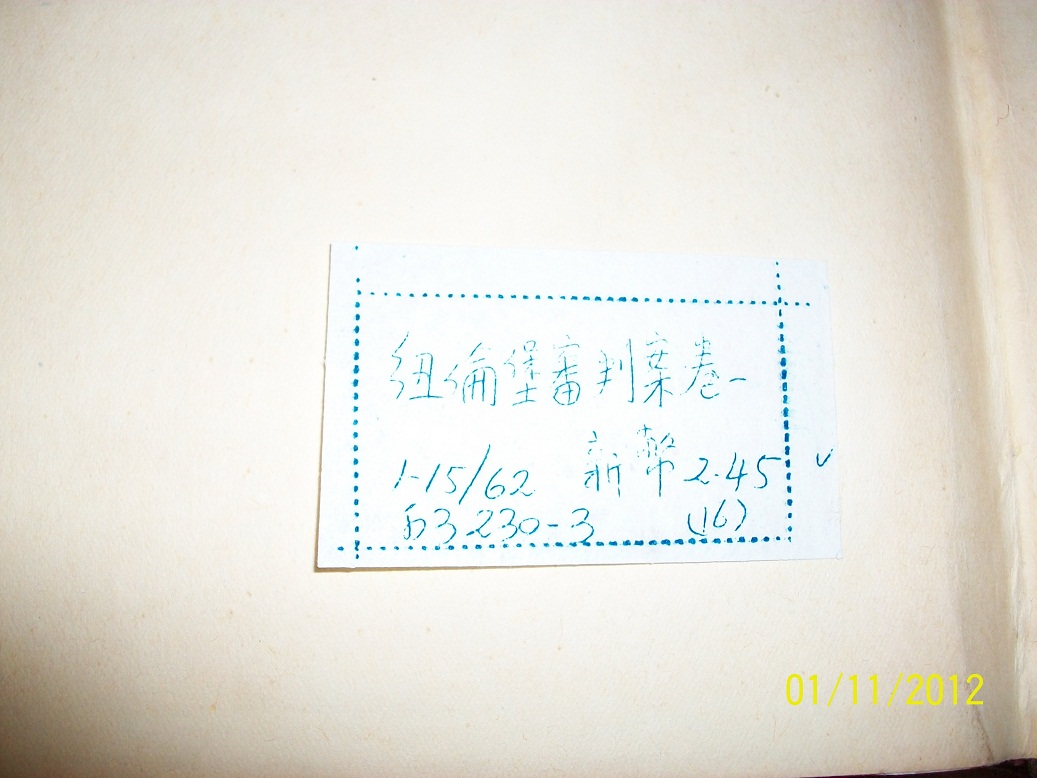 紐倫堡審判案卷一
1-15/62 新幣 2.45 v
3230-3 (16)
01/11/2012